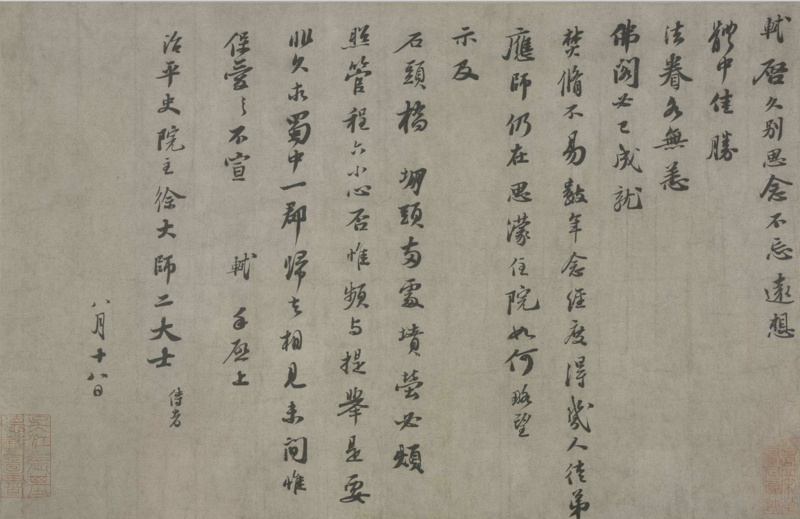 軾啓久别思念不忘遠想
體中佳勝
法眷各無恙
佛閣必已成就
焚脩不易數年念經度得幾人徒弟
應師仍在思濛住院如何略望
示及
石頭橋堋頭兩處墳塋必煩
照管程六小心否惟頻與提舉是要
非久求蜀中一郡歸去相見未間惟
保愛之不宣 軾手啟上
治平史院主徐大師二大士侍者
八月十八日